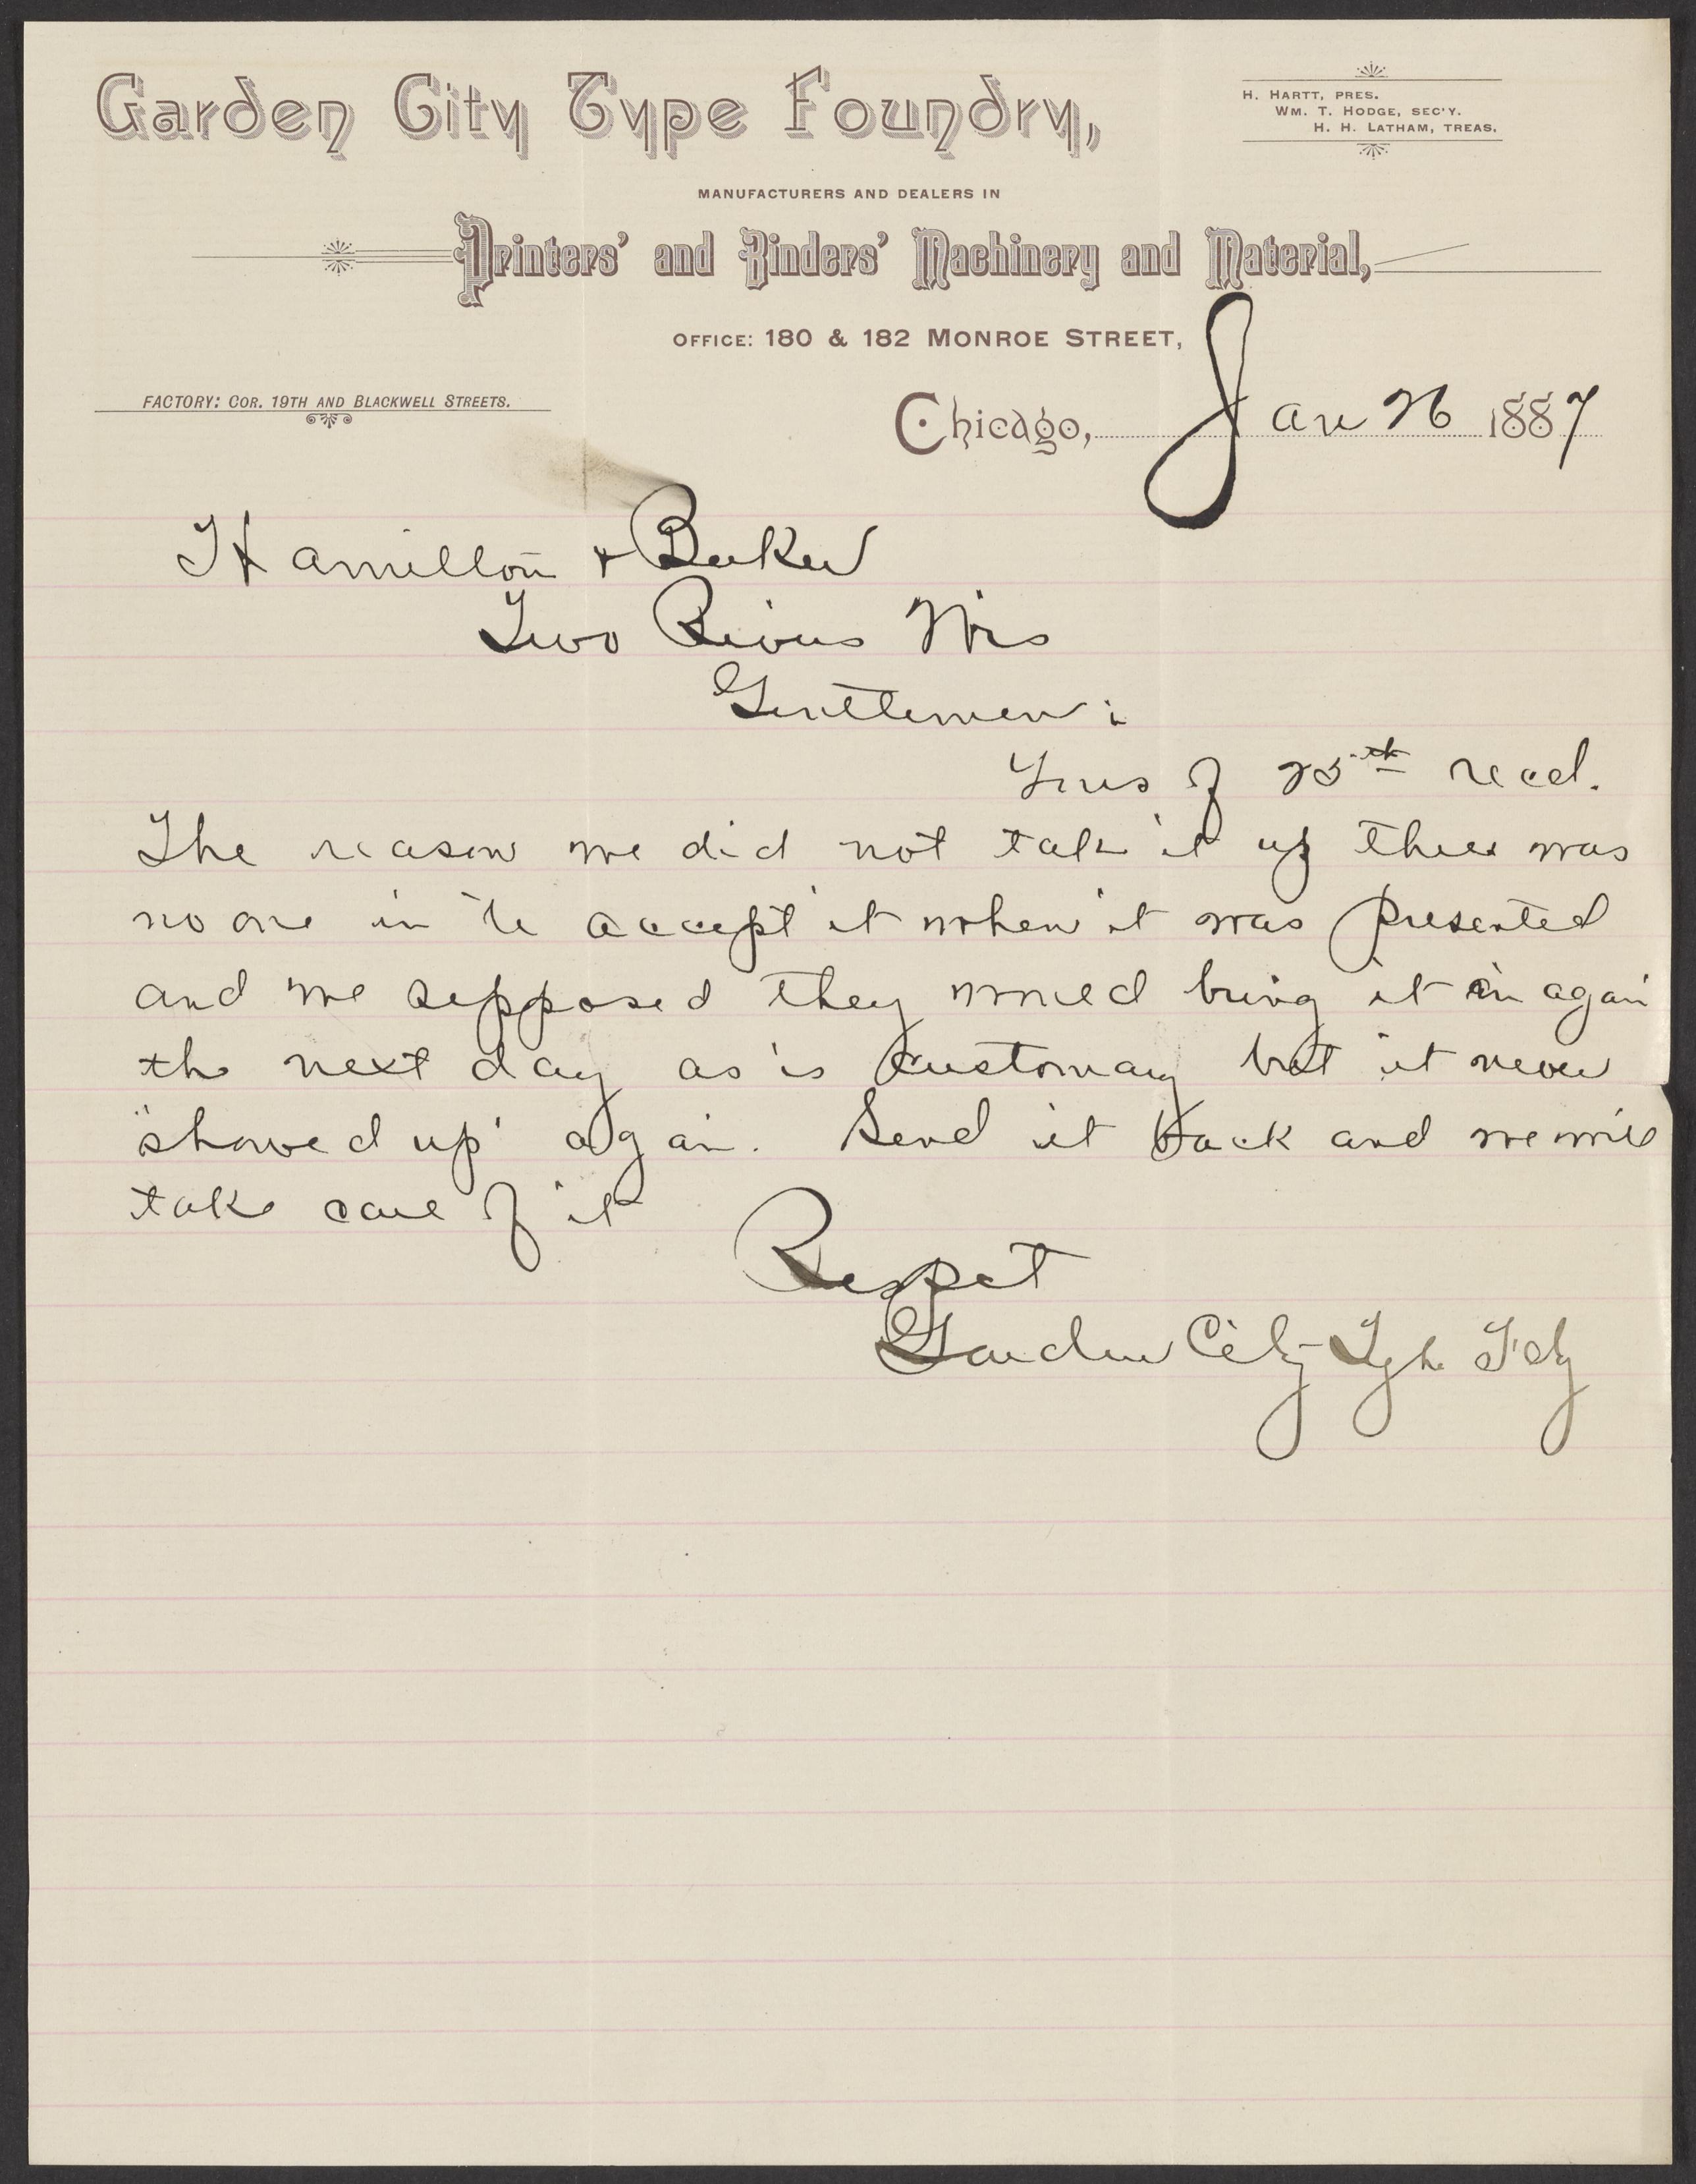 Garden City Type Foundry,
H. HARTT, PRES.
WM. T. HODGE, SEC'Y.
H. H. LATHAM, TREAS.
MANUFACTURERS AND DEALERS IN
Printers' and Binders' Machinery and Material,
OFFICE: 180 & 182 MONROE STREET,
FACTORY: COR. 19TH AND BLACKWELL STREETS.
Chicago, Jan 26 1887
Hamilton & Baker
Two Rivers Wis
Gentlemen:
Yours of 25th recd.
The reason we did not take it up there was
no one in to accept it when it was presented
and we supposed they would bring it in again
the next day as is customary but it never
"showed up" again. Send it back and we will
take care of it
Respct
Garden City Type Fdy